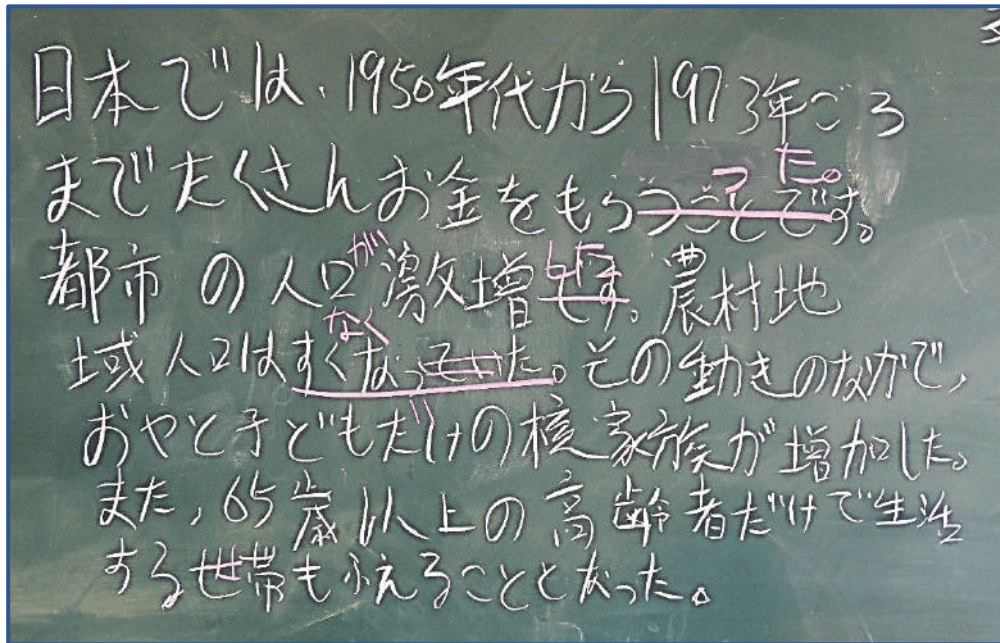 日本では、1950年代から1973年ごろ
った。
までたくさんお金をもらうことです。
都市の人口が激増です。農村地
なく
域人口はすくなってきた。その動きのなかで,
おやと子どもだけの核家族が増加した。
また,65歳以上の高齢者だけで生活
する世帯もふえることとなった。